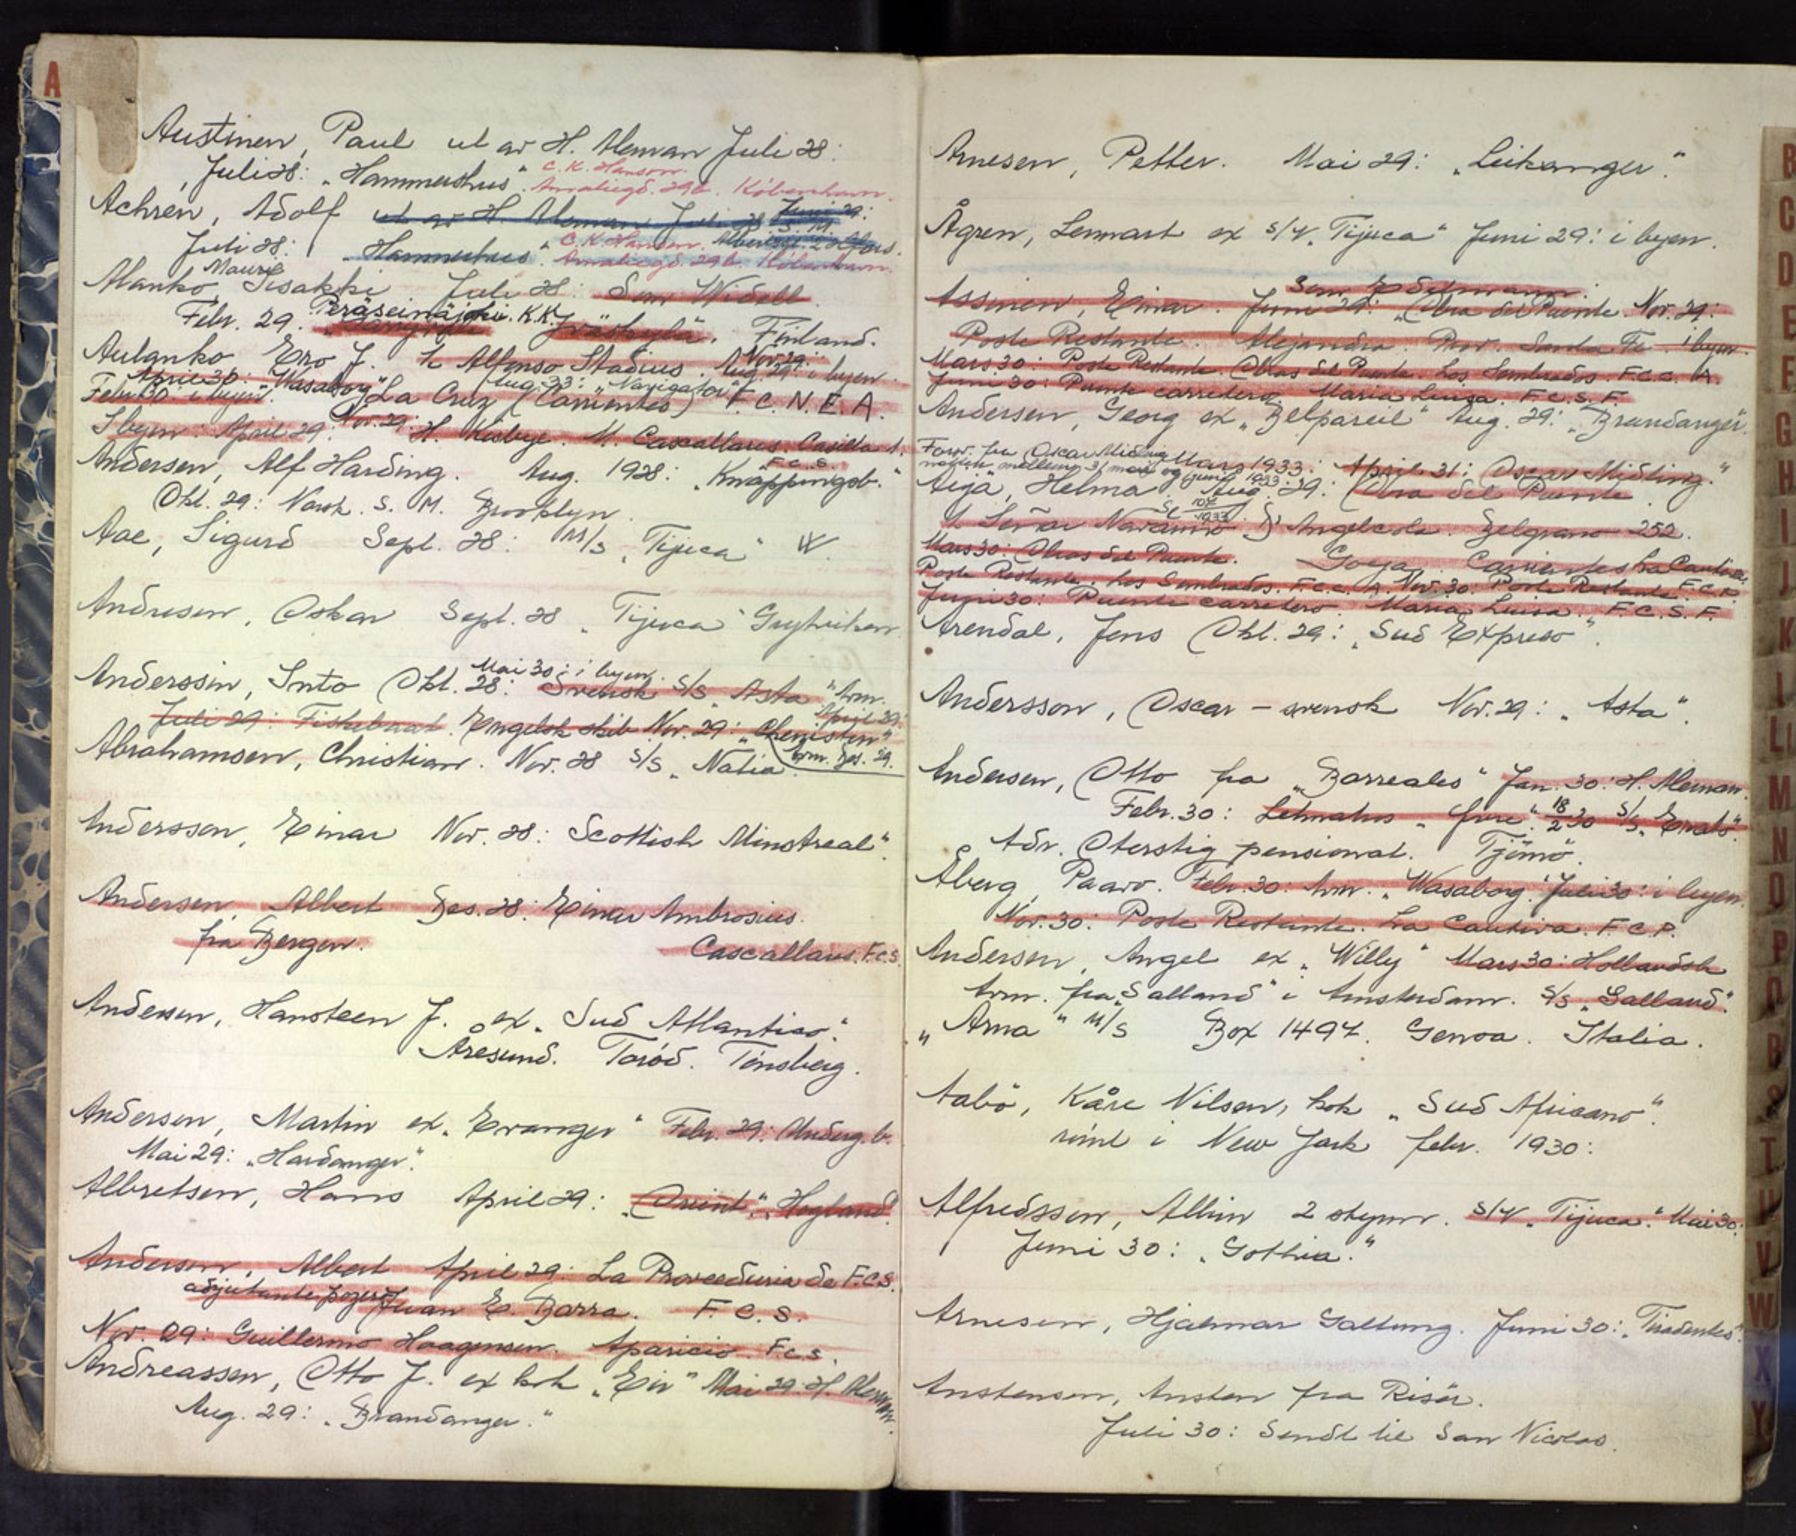 A
Austinen, Paul ut av H. Aleman Juli 28:
Juli 28: „Hammershus“ C. K. Hanson.
Amaliegd. 29b. Köbenhavn.
Achrén, Adolf ut av H. Aleman Juli 28 Juni 29:
Juli 28: „Hammershus“ C. K. Hanson.
Amaliegd. 29b. Köbenhavn.
Mauri
Alanko, Iisakki Juli 28: Som Widell.
Febr. 29. Peräseinäjoki. K.K. Jyväskylä. Finland.
Aulanko Ero J. Alfonso Stadius. Nov. 29: Aug. 29: i byen.
April 30: „Wasaborg“ Aug. 33: „Navigator“
Febr. 30 i byen. La Cruz (Corrientes) F. C. N. E. A.
I byen April 29: Nov. 29: H. Kirbye. M. Cascallares. Casilla 1.
F.C.S.
Andersen, Alf Harding. Aug. 1928: „Knappingsb.“
Okt. 29: Norsk. S. M. Brooklyn.
Aae, Sigurd Sept. 28: M/S „Tijuca“ W.
Andresen, Oskar Sept. 28 „Tijuca“ Gryteviken
Mai 30: i byen.
Anderssin, Into Okt. 28: Svensk S/S „Asta“ hrm.
April 29.
Juli 29: Fiskebaat. Engelsk skib Nov. 29: „Chemiston“
hrm. Des. 29.
Abrahamsen, Christian. Nov. 28 S/S „Natia“.
Andersson, Einar Nov. 28: Scottish Minstreal“.
Andersen, Albert Des. 28: Einar Ambrosius.
fra Bergen. Cascallares. F.C.S.
Andersen, Hansteen J. ex „Sud Atlantico“.
Åresund. Toröd. Tönsberg.
Andersen, Martin ex „Evanger“ Febr. 29: Underg. b.
Mai 29: „Hardanger“.
Albretsen, Hans April 29: „Orient“. „Hogland“.
Andersen, Albert April 29: La Proveeduria de F.C.S.
adjutante pozero Juan E. Barra. F. C. S.
Nov. 29: Guillermo Haagensen. Aparicio. F.C.S.
Andreassen, Otto J. ex kok „Eir“ Mai 29: H. Aleman.
Aug. 29: „Brandanger.“
Arnesen, Petter. Mai 29: „Leikanger“.
Ågren, Lennart ex S/V „Tijuca“ Juni 29: i byen.
Assinen, Einar. Juni 29: Obra del Puente. Nov. 29:
Poste Restante. Alejandra. Prov. Santa Fe i byen.
Mars 30: Poste Restante. Obras del Puente. Los Sembrados. F.C.C.A.
Juni 30: Puente carretero. Maria Luisa. F.C.S.F.
Andersen, Georg ex „Belpareil“ Aug. 29: „Brandanger“.
Forv. fra Oscar Midling Mars 1933: April 31: Oscar Midling.“
Aiga, Helma Aug. 29: Obra del Puente
Señor Navarino Angelcola. Belgrano 252.
Mars 30: Obras del Puente. Goya. Corrientes La Cautiva
Poste Restante. Los Sembrados. F.C.C.A. Nov. 30: Poste Restante F.C.P.
Juni 30: Puente carretero. Maria Luisa. F.C.S.F.
Arendal, Jens Okt. 29: „Sud Expreso“.
Andersson, Oscar – svensk Nov. 29: „Asta“.
Andersen, Otto fra „Barreales“ Jan. 30: H. Aleman.
Febr. 30: 18/2 30 S/S „Erato“.
Adr. Oterstig pensionat. Tjömö.
Åberg, Paavo. Febr. 30: hrm. „Wasaborg“ Juli 30: i byen.
Nov. 30: Poste Restante. La Cautiva. F.C.P.
Andersen, Angel ex „Willy“ Mars 30: Hollandsk
hrm. fra „Salland“ i Amsterdam. S/S „Salland“.
„Arna“ M/S Box 1497. Genoa. Italia.
Aabö, Kåre Nilsen, kok „Sud Africano“.
römt i New York febr. 1930:
Alfredsson, Albin 2 styrm. S/V „Tijuca.“ Mai 30:
Juni 30: „Gothia.“
Arnesen, Hjalmar Galtung. Juni 30: „Tiradentes“.
Anstensen, Ansten fra Risör.
Juli 30: Sendt til San Nicolas.
B
C
D
E
F
G
H
I
J
K
L
Ll
M
N
O
P
Q
R
S
T
U
V
W
X
Y